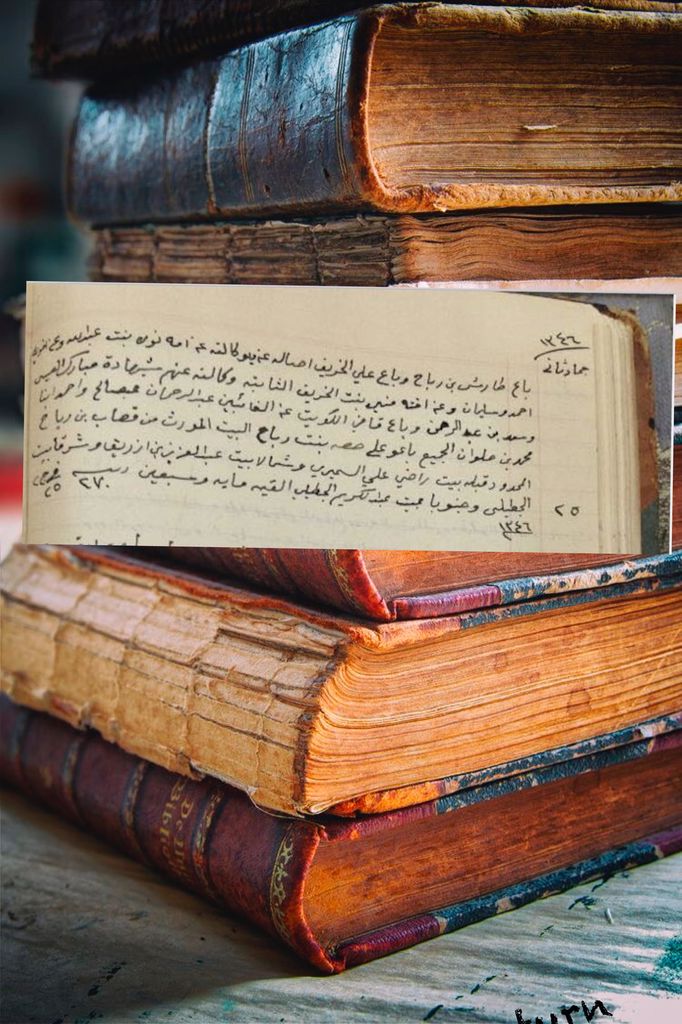 ١٣٤٦
جماد ثاني
باع طارش بن رباح وباع علي الخريف اصاله عن وكالته عن امه نوره بنت عبدالله وعن اخويه
احمد وسليمان وعن اخته منيره بنت الخريف الثابته وكالته عنهم بشهادة مبارك
وسعد بن عبدالرحمن وباع قاضي الكويت عن الغائبين عبدالرحمان وصالح واحمد ابنا
محمد بن علوان الجميع باعو على حصه بنت رباح البيت المورث من قصاب بن رباح
المحدود قبله بيت راضي علي السميري وشمالا بيت عبدالعزيز بن ازريق وشرقا بيت
الجطيلي وجنوبا بيت عبدالكريم الجطيلي القيمه مايه وسبعين ربيه ٢٧٠
٢٥
١٣٤٦
٢٥